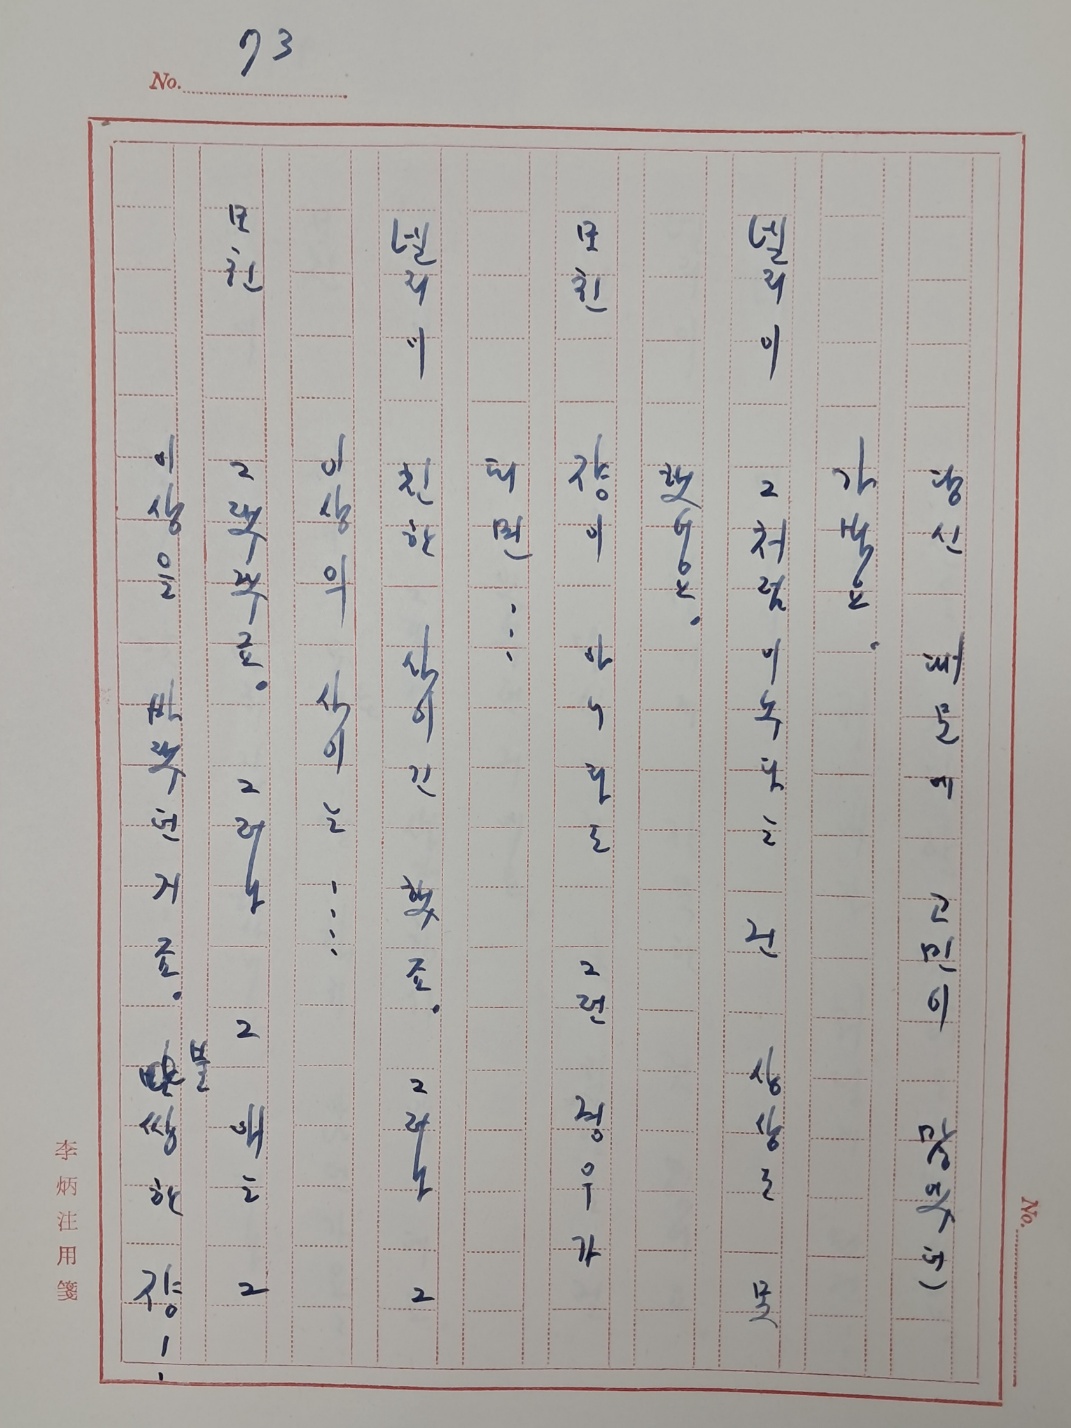 No. 73
당신 때문에 고민이 많았던
가봐요.
넬리이 그처럼 건 상상도 못
했어요.
모친 쟝이 아니라도 그런 경우가
되면…
넬리이 친한 사이긴 했죠. 그러나 그
이상의 사이는……
모친 그러나 그 애는 그
이상을 바랬던 거죠. 불쌍한 쟝!
李炳注用箋
No.